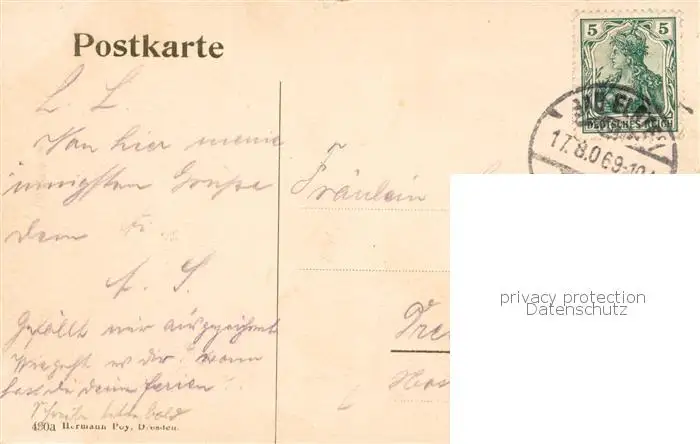 Postkarte
5 5
DEUTSCHES REICH
BAD ELSTER
17.8.06 9-10
L. L.
Von hier meine
innigsten Grüße
dem
A. S.
Gefällt mir ausgezeichnet
Wie geht es dir? wann
hast du deine Ferien?
Schreibe bitte bald
Fräulein
Dre
privacy protection
Datenschutz
490a Hermann Poy, Dresden.